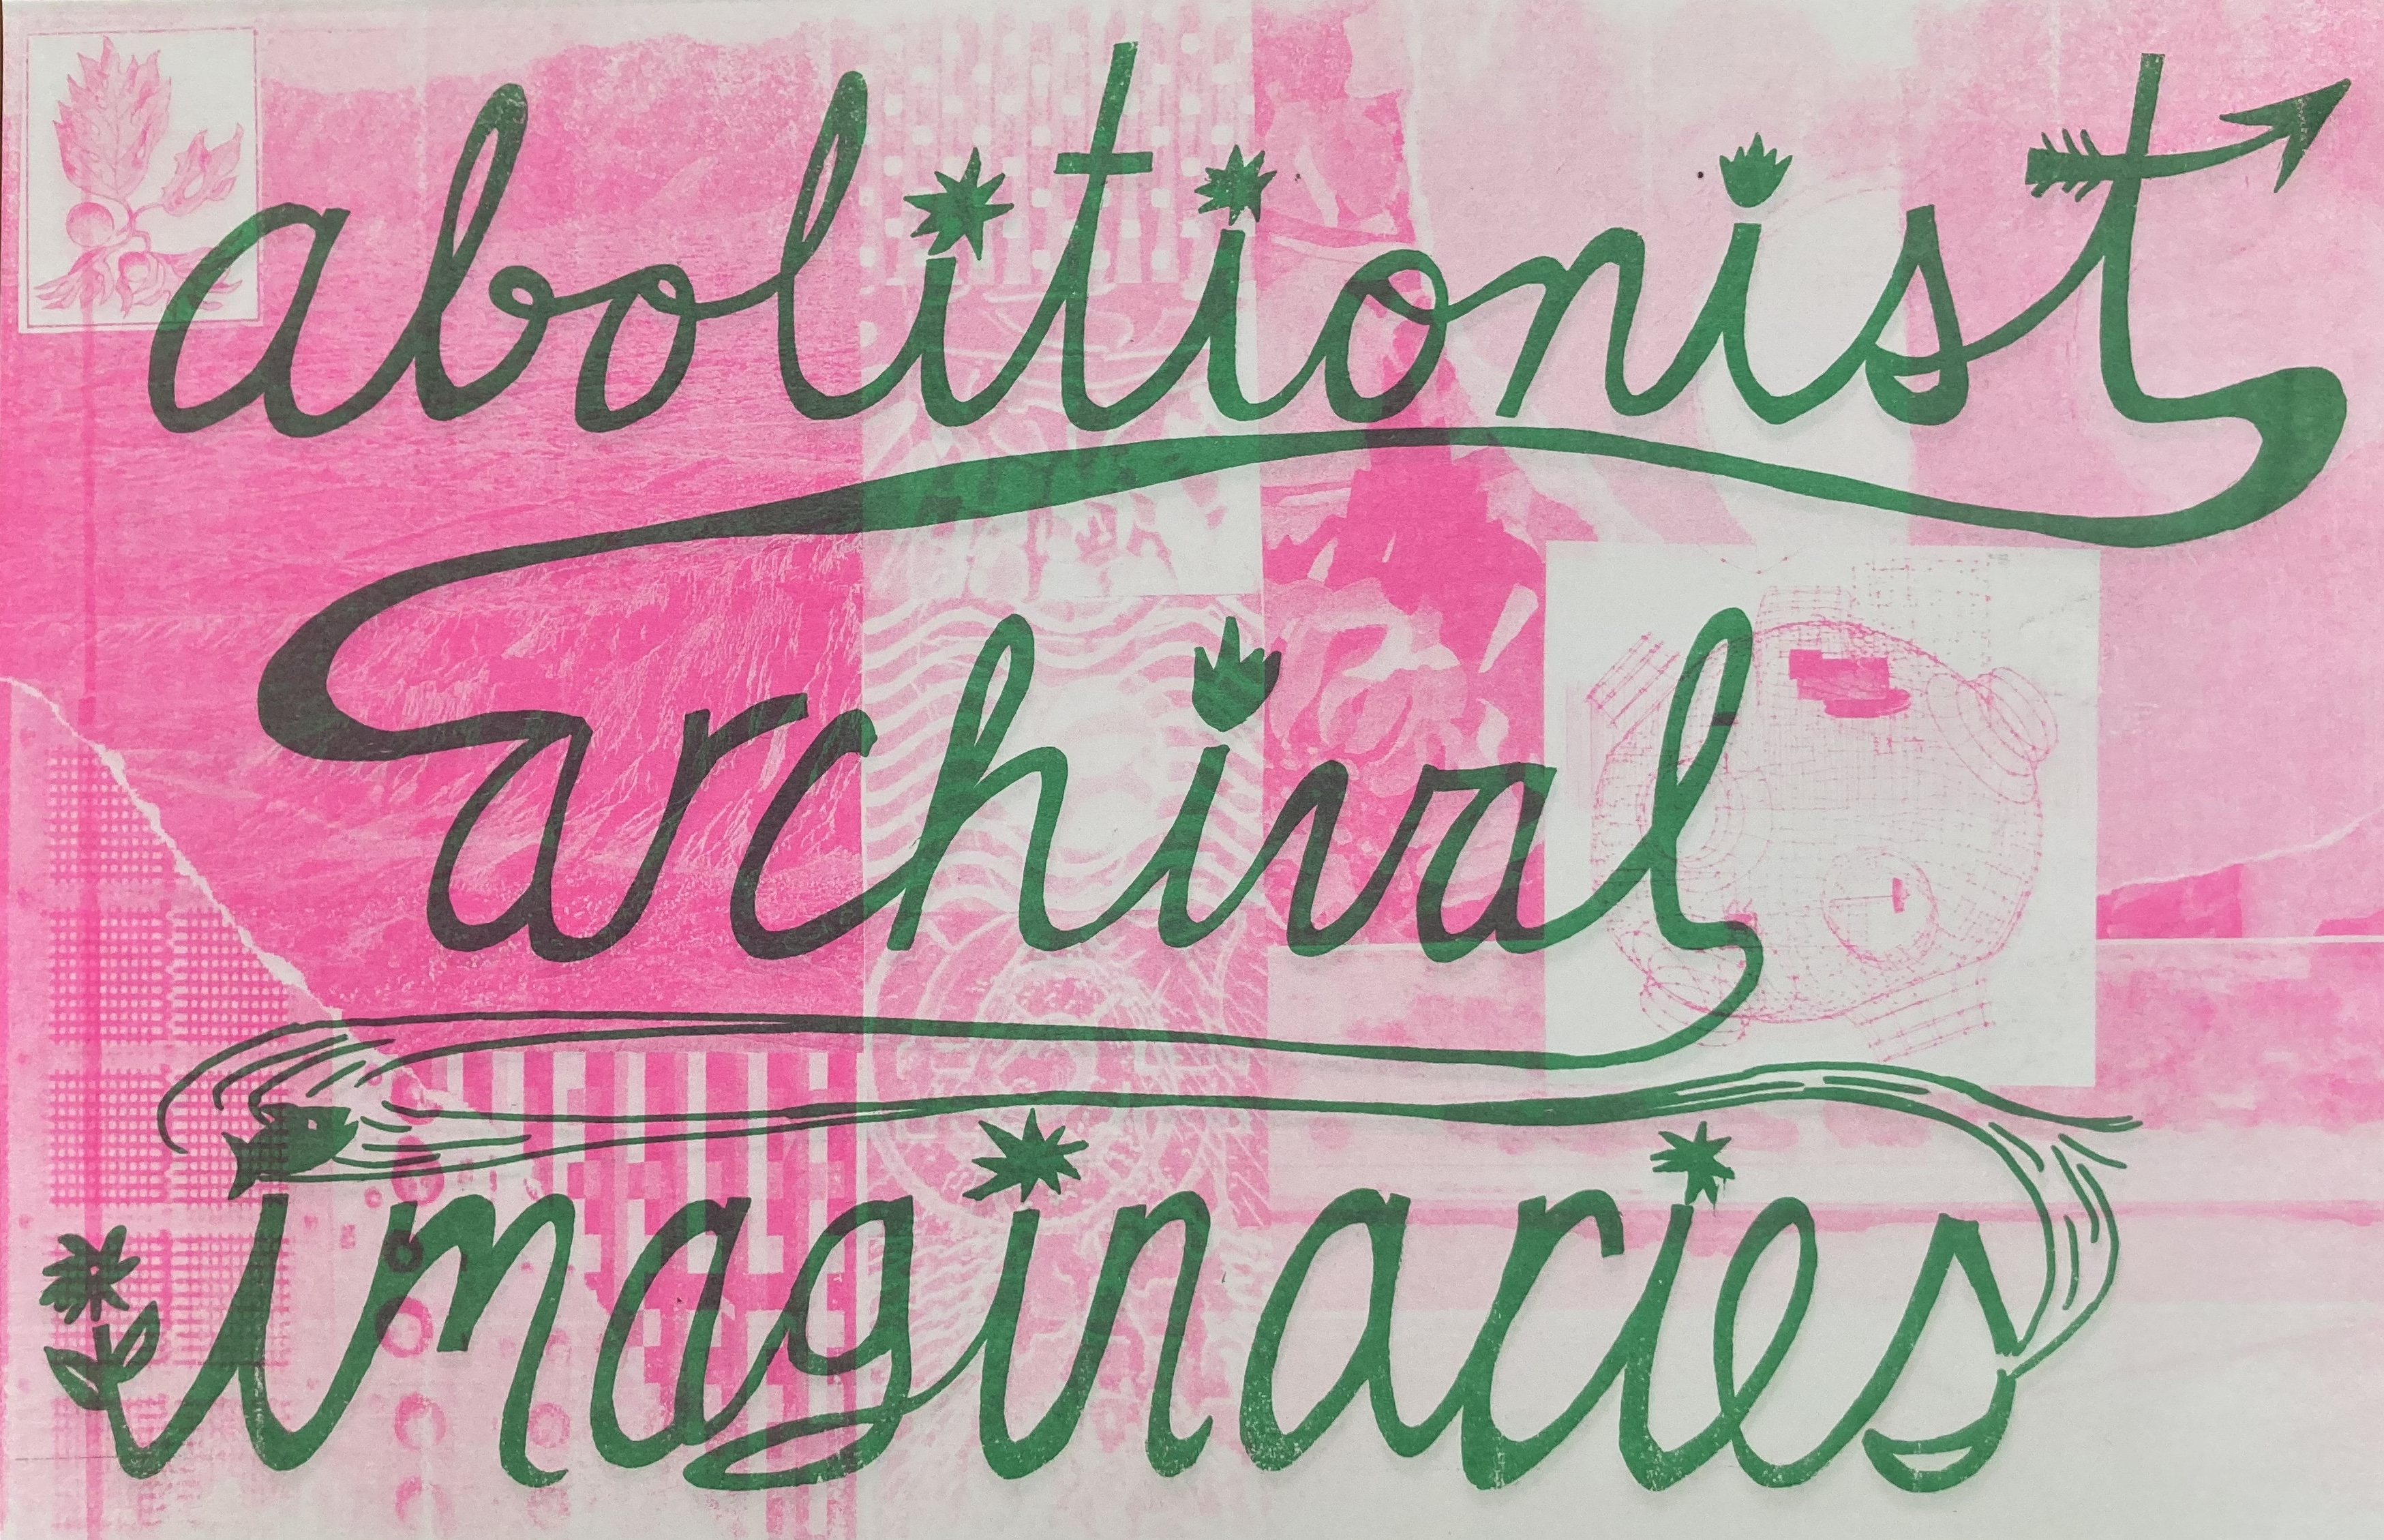 abolitionist
archival
imaginaries